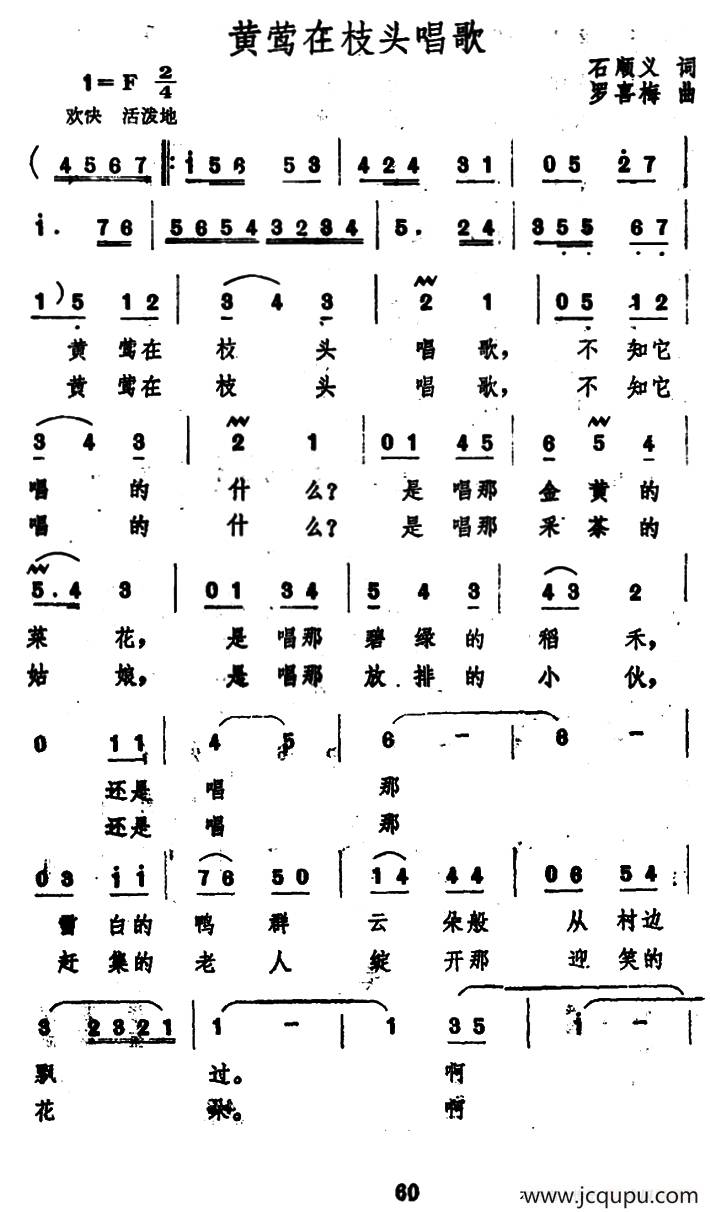 黄莺在枝头唱歌
1=F 2/4
石顺义 词
罗喜梅 曲
欢快 活泼地
( 4567 ‖: i56 53 | 424 31 | 05 27 |
i. 76 | 5654 3234 | 5. 24 | 355 67 |
1) 5 12 | 3 4 3 | 2 1 | 05 12 |
黄 莺在 枝 头 唱 歌, 不 知它
黄 莺在 枝 头 唱 歌, 不 知它
3 4 3 | 2 1 | 01 45 | 6 5 4 |
唱 的 什 么? 是 唱那 金 黄 的
唱 的 什 么? 是 唱那 采 茶 的
5.4 3 | 01 34 | 5 4 3 | 43 2 |
菜 花, 是 唱那 碧 绿 的 稻 禾,
姑 娘, 是 唱那 放 排 的 小 伙,
0 11 | 4 5 | 6 - | 6 - |
还是 唱 那
还是 唱 那
03 ii | 76 50 | 14 44 | 06 54 |
雪 白的 鸭 群 云 朵般 从 村边
赶 集的 老 人 绽 开那 迎 笑的
3 2321 | 1 - | 1 35 | i - |
飘 过。 啊
花 朵。 啊
60
www.jcqupu.com